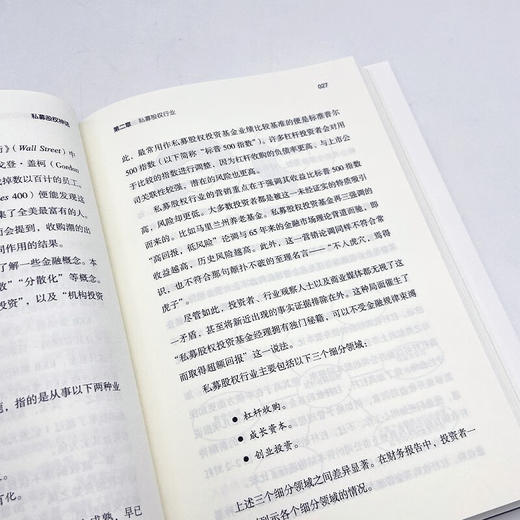 私募股权神话
行》(Wall Street) 中
戈登·盖柯 (Gordon
成掉数以百计的员工。
es 400) 便能发现这
集了全美最富有的人。
而会提到，收购潮的出
同作用的结果。
了解一些金融概念。本
数” “分散化” 等概念。
投资”，以及 “机构投资
，指的是从事以下两种业
有化。
成熟，早已
第二章 私募股权行业
027
此，最常用作私募股权投资基金业绩比较基准的便是标准普尔
500 指数（以下简称 “标普 500 指数”）。许多杠杆投资者会对用
于比较的指数进行调整，因为杠杆收购的负债率更高、与上市公
司关联性较强，潜在的风险也更高。
私募股权行业的营销重点在于强调其收益比标普 500 指数
高，风险却更低。大多数投资者都是被这一未经证实的特质吸引
而来的。比如马里兰州养老基金。私募股权投资基金再三强调的
“高回报，低风险” 论调与 65 年来的金融市场理论背道而驰，即
收益越高，历史风险越高。此外，这一营销论调同样不符合常
识，也不符合那句颠扑不破的至理名言——“不入虎穴，焉得
虎子”。
尽管如此，投资者、行业观察人士以及商业媒体都无视了这
一矛盾，甚至将新近出现的事实证据排除在外。这种局面催生了
“私募股权投资基金经理拥有独门秘籍，可以不受金融规律束缚
而取得超额回报” 这一说法。
私募股权行业主要包括以下三个细分领域：
● 杠杆收购。
● 成长资本。
● 创业投资。
上述三个细分领域之间差异显著。在财务报告中，投资者一
列示各个细分领域的情况。